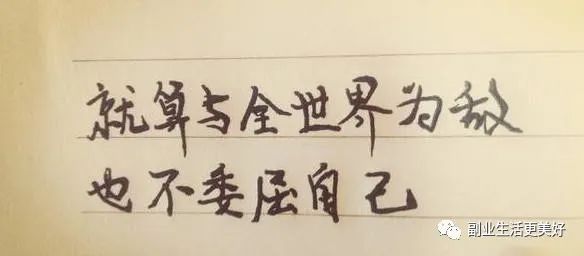 就算与全世界为敌
也不委屈自己
副业生活更美好